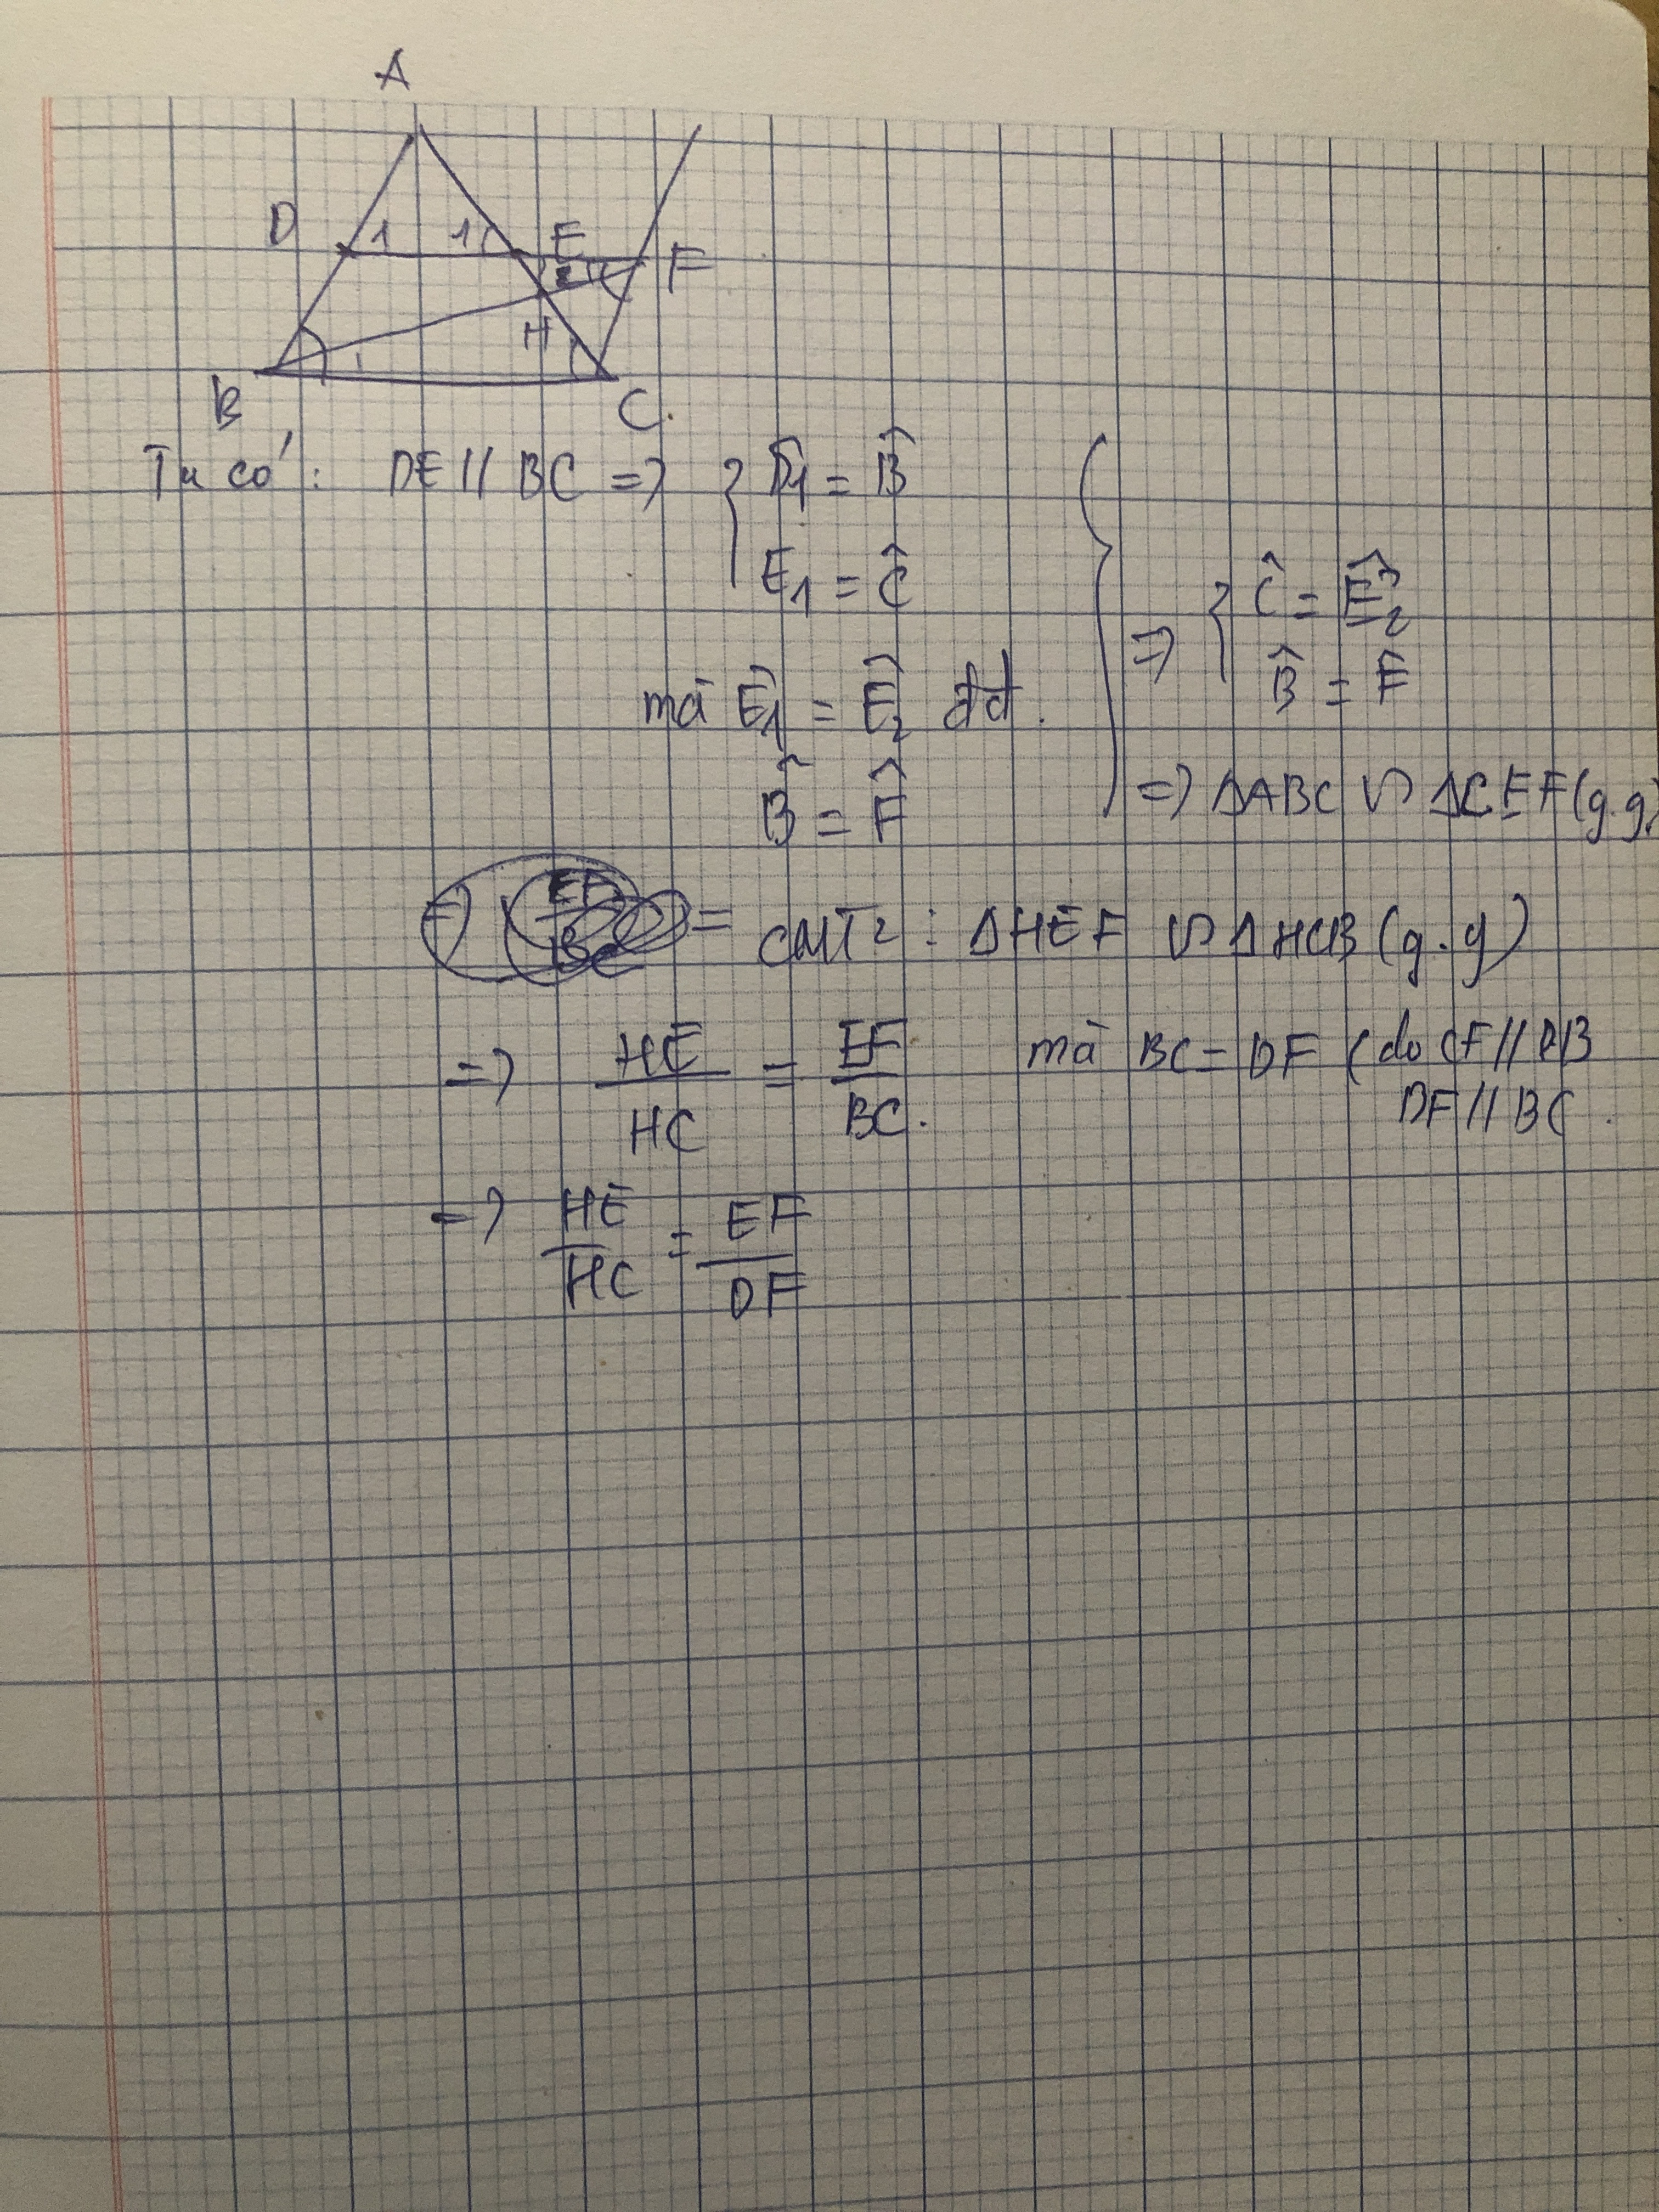 A
D 1 1 E F
2
H
B 1 C.
Ta có: DE // BC => { D̂1 = B̂
E1 = Ĉ
=> { Ĉ = Ê2
mà Ê1 = Ê2 đđ.
B̂ = F̂
B̂ = F̂
=> ΔABC ∽ ΔCEF (g.g)
=> EF/BC = CMT2 : ΔHEF ∽ ΔHCB (g.g)
=> HE/HC = EF/BC. mà BC = DF (do CF // DB
DF // BC.
=> HE/HC = EF/DF